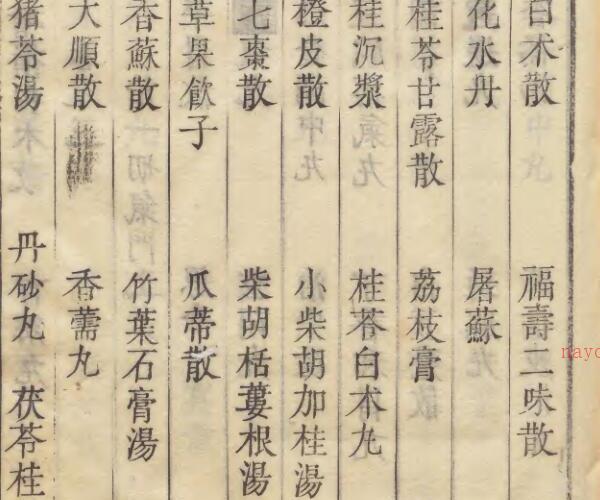 白朮散 福壽二味散
化水丹 屠蘇
桂苓甘露散 荔枝膏
桂沉漿 桂苓白朮丸
橙皮散 小柴胡加桂湯
七棗散 柴胡栝蔞根湯
草果飲子 瓜蒂散
香蘇散 竹葉石膏湯
大順散 香薷丸
猪苓湯 丹砂丸 茯苓桂
nayo